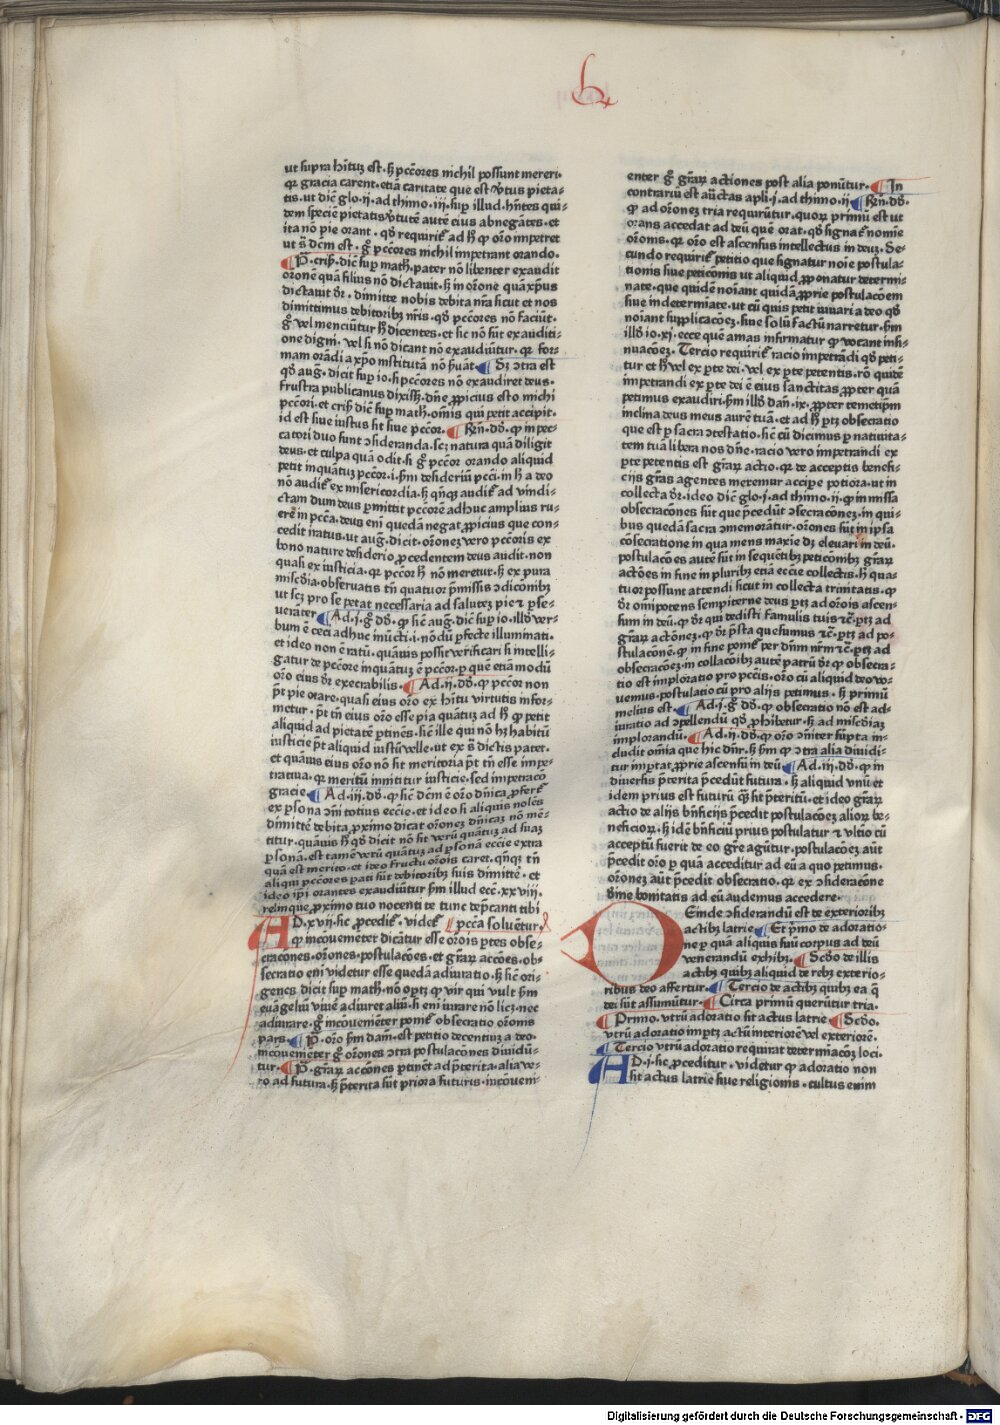 ut supra hītuȝ est. ꝫ pcc̄ores nichil possunt mereri.
qꝛ gracia carent. etiā caritate que est v̓tus pieta-
tis. ut dic̄ glo. ii. ad thimo. iii. sup illud. hn̄tes qui-
dem specie pietatis v̓tutē autē eius abnegātes. et
ita nō pie orant. qď requirit᷑ ad hͦ ꝙ oro īmpetret
ut s̄ dcm̄ est. gͦ pcc̄ores nichil impetrant orando.
¶ P̄. criḧ. dic̄ sup math. pater nō libenter exaudit
oronē quā filius nō dictavit. ꝫ in orone quā xp̄us
dictavit dr̄. dimitte nobis debita nr̄a sicut et nos
dimittimus debitoribꝫ nr̄is. qď pcc̄ores nō faciūt.
gͦ vel menciūtur hͦ dicentes. et sic nō sūt exauditi-
one digni. vel si nō dicant nō exaudiūtur. qꝛ for-
mam orādi a xp̄o institutā nō ẜuāt ¶ Sꝫ ↄtra est
qď aug. dicit sup io. si pcc̄ores nō exaudiret deus.
frustra publicanus dixissꝫ. dn̄e ꝓpicius esto michi
pcc̄ori. et criḧ dic̄ sup math. om̄is qui petit accipit.
id est siue iustus sit siue pcc̄or. ¶ Rn̄. dō. ꝙ in pec-
catori duo sunt ↄsideranda. scꝫ natura quā diligit
deus. et culpa quā odit. si gͦ pcc̄or orando aliquid
petit inquātuȝ pcc̄or. i. ẜm desideriū pcc̄i. in hͦ a deo
nō audit᷑ ex misericordia. ꝫ qn̄qꝫ audit᷑ ad vindi-
ctam dum deus ꝑmittit pcc̄orē adhuc amplius ru-
ere in pcc̄a. deus eni quedā negat ꝓpicius que con-
cedit iratus. ut aug. dicit. oronez vero pcc̄oris ex
bono nature desiderio ꝓcedentem deus audit. non
quasi ex iusticia. qꝛ pcc̄or hͦ nō meretur. ꝫ ex pura
misc̄dia. obseruatis tn̄ quatuor p̄missis ↄdicōibꝫ
ut scꝫ pro se petat necessaria ad salutez pie ⁊ ꝑse-
uerāter ¶ Ad. i. gͦ dō. ꝙ sic̄ aug. dic̄ sup io. illď ver-
bum ē ceci adhuc inūcti. i. nōdū ꝑfecte illuminati.
et ideo non ē ratū. quāuis possit verificari si intelli-
gatur de pcc̄ore inquātuȝ ē pcc̄or. ꝑ quē etiā modū
oro eius dr̄ execrabilis. ¶ Ad. ii. dō. ꝙ pcc̄or non
p̄t pie orare. quasi eius oro ex hītu virtutis infor-
metur. p̄t tn̄ eius oro esse pia quātuȝ ad hͦ ꝙ petit
aliquid ad pietatē ꝑtinēs. sic̄ ille qui nō hꝫ habitū
iusticie p̄t aliquid iustū velle. ut ex s̄ dictis patet.
et quāuis eius oro nō sit meritoria p̄t tn̄ esse impe-
tratiua. qꝛ meritū innititur iusticie. sed impetraco
gracie ¶ Ad. iii. dō. ꝙ sic̄ dcm̄ ē oro dn̄ica ꝓfert᷑
ex ꝑsona ↄn̄i totius eccīe. et ideo si aliquis nolēs
dimittē debita ꝓximo dicat oronez dn̄icaȝ nō mē-
titur. quāuis hͦ qď dicit nō sit verū quātuȝ ad suaȝ
ꝑsonā. est tamē verū quātuȝ ad ꝑsonā eccīe extra
quā est merito. et ideo fructu orois caret. qn̄qꝫ tn̄
aliqui pcc̄ores pati sūt debitoribꝫ suis dimittē. et
ideo ip̄i orantes exaudiūtur ẜm illud ecc̄. xxviij.
relinque ꝓximo tuo nocenti te tunc dep̄canti tibi
AD. xvij. sic ꝓcedit᷑. videt᷑ ¶ pcc̄a soluēntur.
ꝙ incōuenieter dicātur esse orois ꝑtes obse-
cracōnes. orones. postulacōes. et gr̄aꝝ accōes. ob-
secratio eni videtur esse quedā adiuratio. ꝫ sic̄ ori-
genes dicit sup math. nō oꝑtꝫ ꝙ vir qui vult ẜm
euāgeliū viuē adiuret aliū. si eni iurare nō licꝫ. nec
adiurare. gͦ incōuenieter ponit᷑ obsecratio oronis
pars. ¶ P̄. oro ẜm dam̄. est petitio decentiuȝ a deo.
incōueniēter gͦ orones ↄtra postulacōnes diuidū-
tur. ¶ P̄. gr̄aꝝ accōnes ꝑtinēt ad p̄terita. alia ve-
ro ad futura. ꝫ p̄terita sūt priora futuris. incōueni-
enter gͦ gr̄aꝝ actiones post alia ponūtur. ¶ In
contrariū est auc̄tas apl̄i. i. ad thimo. ii ¶ Rn̄. dō.
ꝙ ad oronez tria requirūtur. quoꝝ primū est ut
orans accedat ad deū quē orat. qď signat᷑ nomīe
oronis. qꝛ oro est ascensus intellectus in deuȝ. Se-
cundo requirit᷑ petitio que signatur noīe postula-
tionis siue peticōnis ut aliquid ꝓponatur determi-
nate. que quidē noīant quidā ꝓprie postulacōem
siue indeterminate. ut cū quis petit iuuari a deo qď
noīant supplicacōez. siue solū factū narretur. ẜm
illď io. xj. ecce quē amas infirmatur ꝙ vocant insi-
nuacōez. Tercio requirit᷑ racio impetrādi qď peti-
tur et hͦ vel ex ꝑte dei. vel ex ꝑte petentis. rō quidē
impetrandi ex ꝑte dei ē eius sanctitas ꝓpter quā
petimus exaudiri. ẜm illď dan̄. ix. ꝓpter temetip̄m
inclina deus meus aurē tuā. et ad hͦ ꝑtꝫ obsecratio
que est ꝑ sacra ↄtestatio. sic̄ cū dicimus ꝑ natiuita-
tem tuā libera nos dn̄e. racio vero impetrandi ex
ꝑte petentis est gr̄aꝝ actio. qꝛ de acceptis benefi-
cijs gr̄as agentes meremur accipe potiora. ut in
collecta dr̄. ideo dic̄ glo. i. ad thimo. ii. ꝙ in missa
obsecracōnes sūt que p̄cedūt ↄsecracōnez. in qui-
bus quedā sacra ↄmemorātur. orones sūt in ipsa
cōsecratione in qua mens maxīe dꝫ eleuari in deū.
postulacōes autē sūt in sequētibꝫ peticōnibꝫ gr̄aꝝ
actōes in fine in pluribꝫ etiā eccīe collectis. hͦ qua-
tuor possunt attendi sicut in collecta trinitatis. ꝙ
dr̄ om̄ipotens sempiterne deus ꝑtꝫ ad orois ascen-
sum in deū. ꝙ dr̄ qui dedisti famulis tuis ⁊c̄. ꝑtꝫ ad
gr̄aꝝ actōnez. ꝙ dr̄ p̄sta quesumus ⁊c̄. ꝑtꝫ ad po-
stulacōnē. ꝙ in fine ponit᷑ per dn̄m nr̄m ⁊c̄ ꝑtꝫ ad
obsecracōez. in collacōibꝫ autē patrū dr̄ ꝙ obsecra-
tio est imploratio pro pcc̄is. oro cū aliquid deo vo-
uemus. postulatio cū pro alijs petimus. ꝫ primū
melius est. ¶ Ad. i. gͦ dō. ꝙ obsecratio nō est ad-
iuratio ad ↄpellendū qď ꝓhibetur. ꝫ ad misc̄diaȝ
implorandū. ¶ Ad. ii. dō. ꝙ oro ↄn̄iter sūpta in-
cludit om̄ia que hic dn̄r. ꝫ ẜm ꝙ ↄtra alia diuidi-
tur īmportat ꝓprie ascensū in deū ¶ Ad. iii. dō. ꝙ in
diuersis p̄terita p̄cedūt futura. ꝫ aliquid vnū et
idem prius est futurū qꝫ sit p̄teritū. et ideo gr̄aꝝ
actio de alijs bn̄ficijs p̄cedit postulacōez alioꝝ be-
neficioꝝ. ꝫ idē bn̄ficiū prius postulatur ⁊ vltio cū
acceptū fuerit de eo gr̄e agūtur. postulacōez aūt
p̄cedit oro ꝑ quā acceditur ad eū a quo petimus.
oronez aūt p̄cedit obsecratio. qꝛ ex ↄsideracōne
diuine bonitatis ad eū audemus accedere.
DEinde ↄsiderandū est de exterioribꝫ
actibꝫ latrie ¶ Et p̄mo de adoratio-
ne per quā aliquis suū corpus ad deū
venerandū exhibꝫ. ¶ Scďo de illis
actibꝫ quibꝫ aliquid de rebꝫ exterio-
ribus deo affertur. ¶ Tercio de actibꝫ quibꝫ ea q̄
dei sūt assumūtur. ¶ Circa primū querūtur tria.
¶ Primo. vtrū adoratio sit actus latrie ¶ Scďo.
vtrū adoratio imꝑtꝫ actū interiorē vel exteriorē.
¶ Tercio vtrū adoratio requirat determīacōez loci.
AD. i. sic ꝓceditur. videtur ꝙ adoratio non
sit actus latrie siue religionis. cultus enim
Digitalisierung gefördert durch die Deutsche Forschungsgemeinschaft - DFG